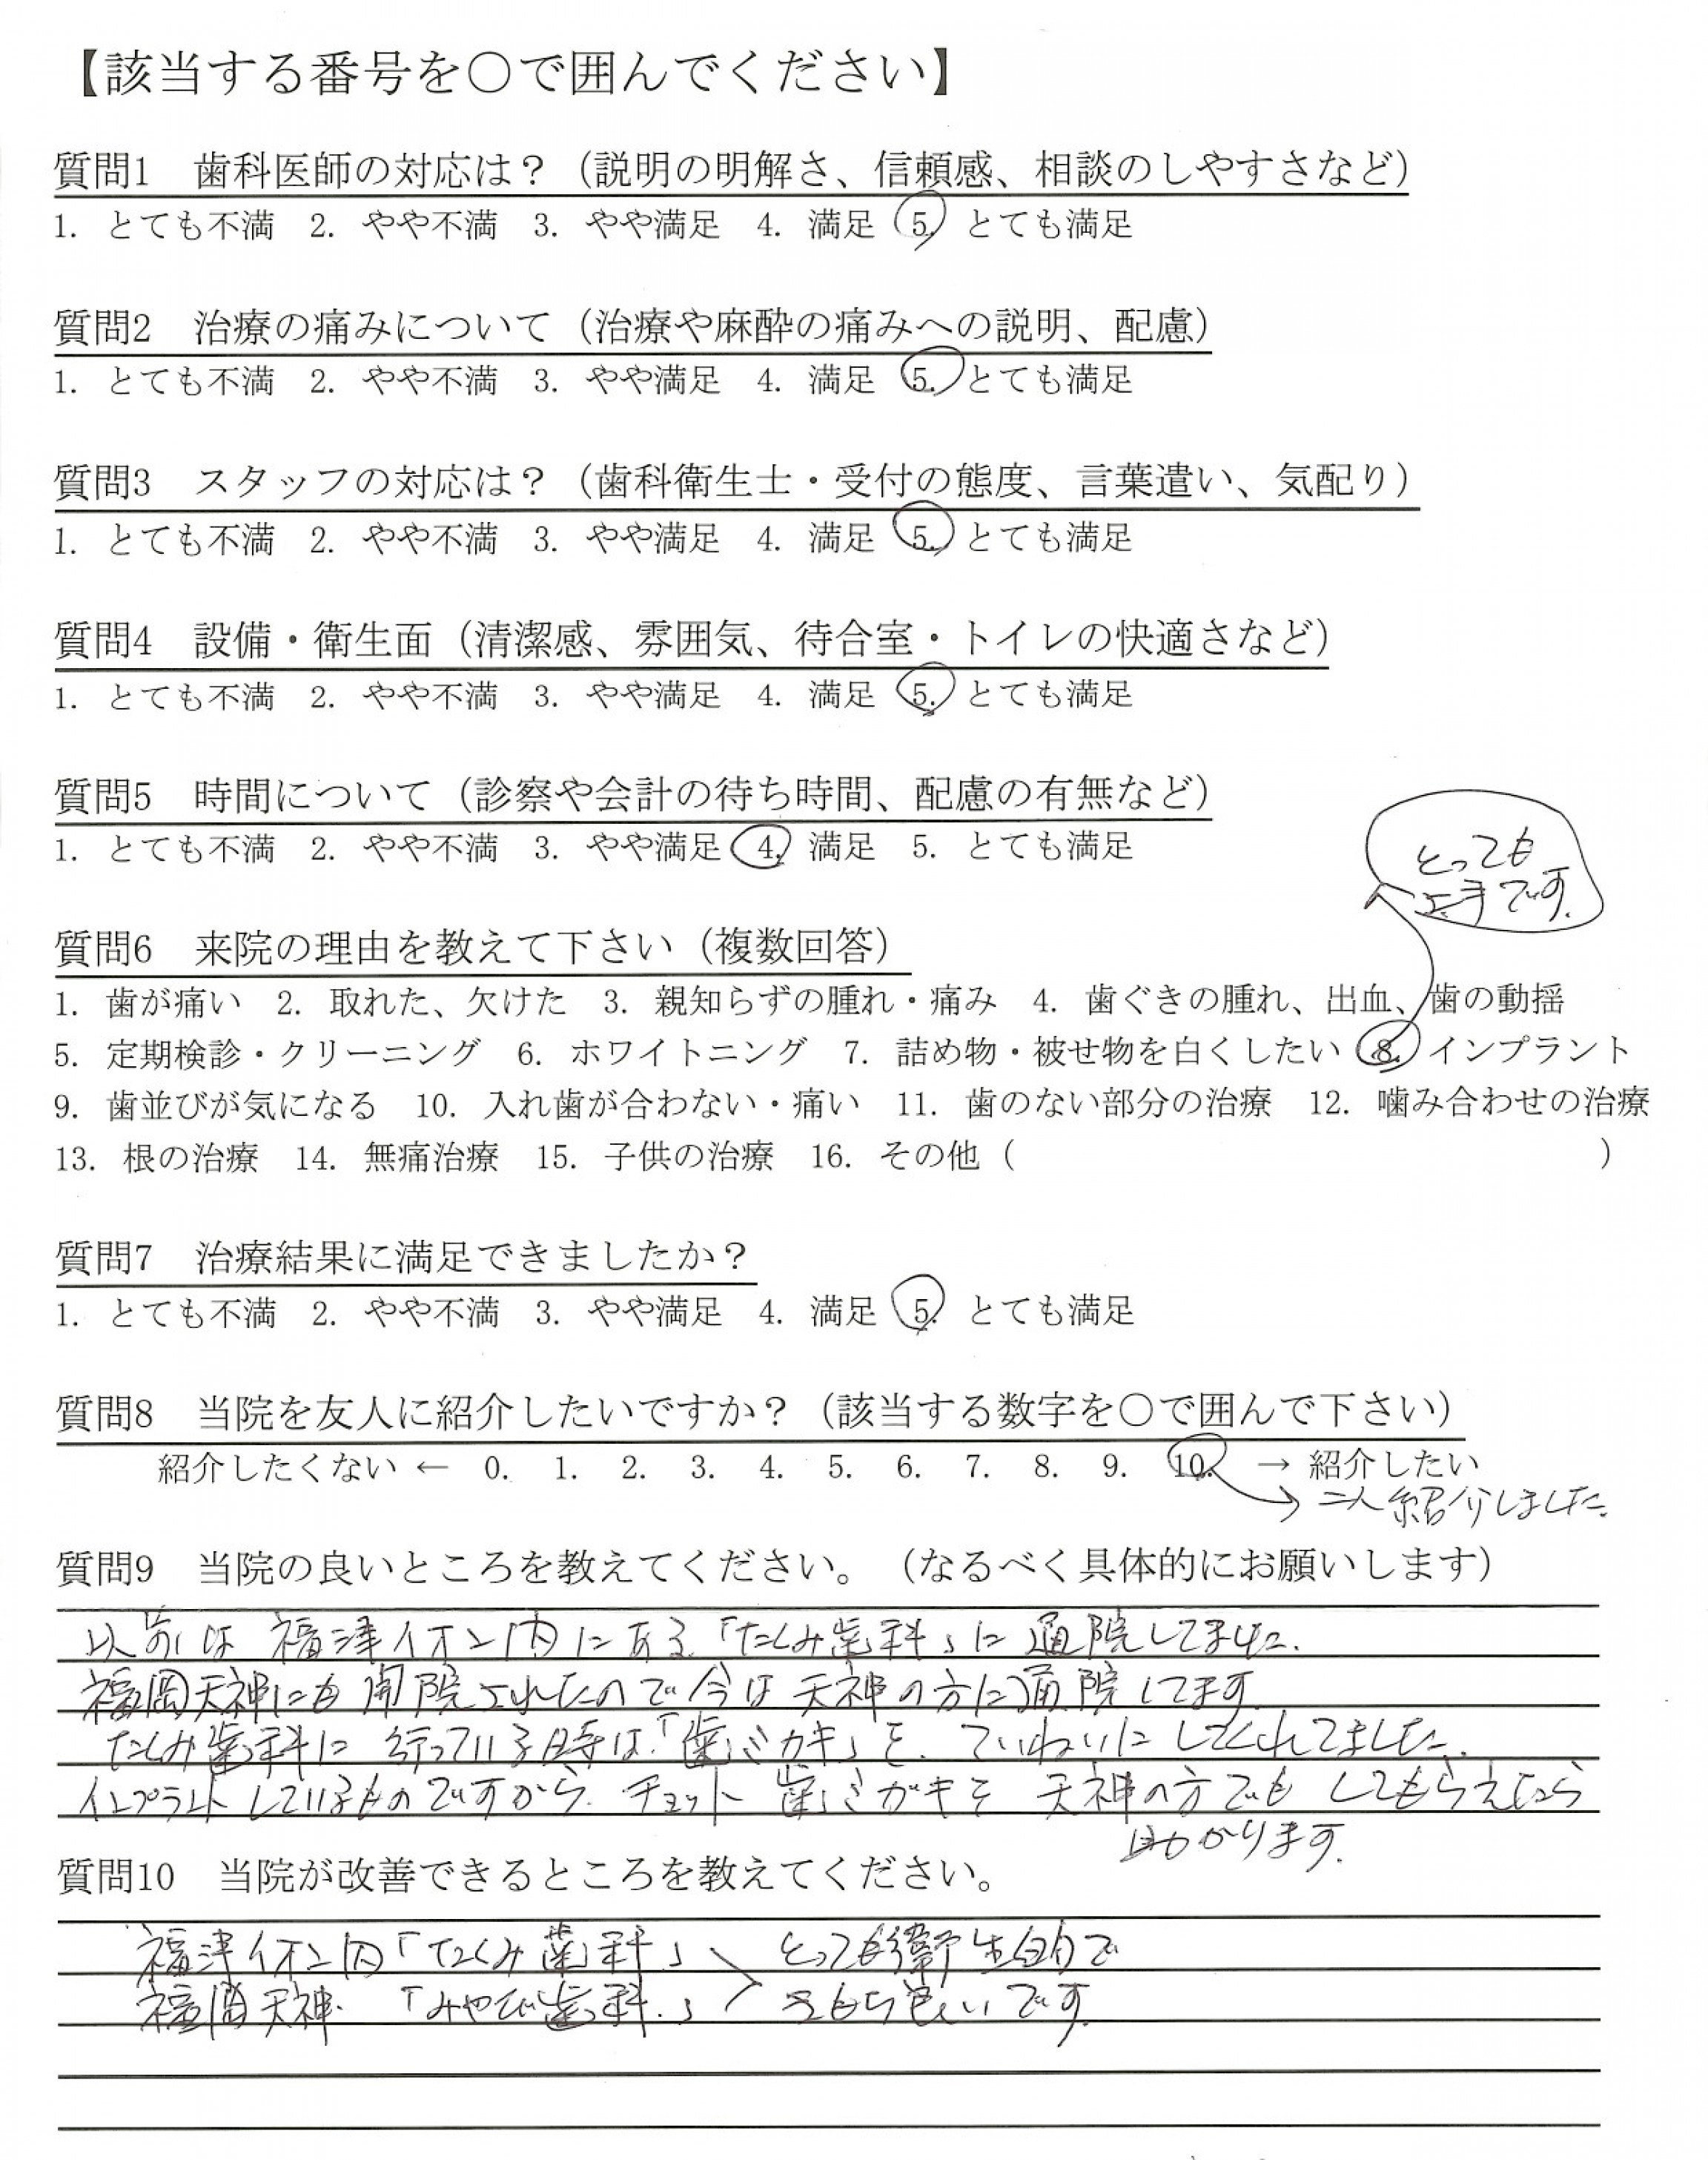 【該当する番号を○で囲んでください】
質問1　歯科医師の対応は？（説明の明解さ、信頼感、相談のしやすさなど）
1. とても不満　2. やや不満　3. やや満足　4. 満足　5. とても満足
質問2　治療の痛みについて（治療や麻酔の痛みへの説明、配慮）
1. とても不満　2. やや不満　3. やや満足　4. 満足　5. とても満足
質問3　スタッフの対応は？（歯科衛生士・受付の態度、言葉遣い、気配り）
1. とても不満　2. やや不満　3. やや満足　4. 満足　5. とても満足
質問4　設備・衛生面（清潔感、雰囲気、待合室・トイレの快適さなど）
1. とても不満　2. やや不満　3. やや満足　4. 満足　5. とても満足
質問5　時間について（診察や会計の待ち時間、配慮の有無など）
1. とても不満　2. やや不満　3. やや満足　4. 満足　5. とても満足
とっても
上手です。
質問6　来院の理由を教えて下さい（複数回答）
1. 歯が痛い　2. 取れた、欠けた　3. 親知らずの腫れ・痛み　4. 歯ぐきの腫れ、出血、歯の動揺
5. 定期検診・クリーニング　6. ホワイトニング　7. 詰め物・被せ物を白くしたい　8. インプラント
9. 歯並びが気になる　10. 入れ歯が合わない・痛い　11. 歯のない部分の治療　12. 噛み合わせの治療
13. 根の治療　14. 無痛治療　15. 子供の治療　16. その他（　　　）
質問7　治療結果に満足できましたか？
1. とても不満　2. やや不満　3. やや満足　4. 満足　5. とても満足
質問8　当院を友人に紹介したいですか？（該当する数字を○で囲んで下さい）
紹介したくない ← 0. 1. 2. 3. 4. 5. 6. 7. 8. 9. 10. → 紹介したい
二人紹介しました。
質問9　当院の良いところを教えてください。（なるべく具体的にお願いします）
以前は福津イオン内にある「たくみ歯科」に通院してました。
福岡天神にも開院されたので今は天神の方に通院してます。
たくみ歯科に行っている時は「歯ミガキ」を、ていねいにしてくれてました。
インプラントしているものですから、チョット歯ミガキを天神の方でもしてもらえたら
助かります。
質問10　当院が改善できるところを教えてください。
福津イオン内「たくみ歯科」 とっても衛生的で
福岡天神「みやび歯科.」 きもち良いです。